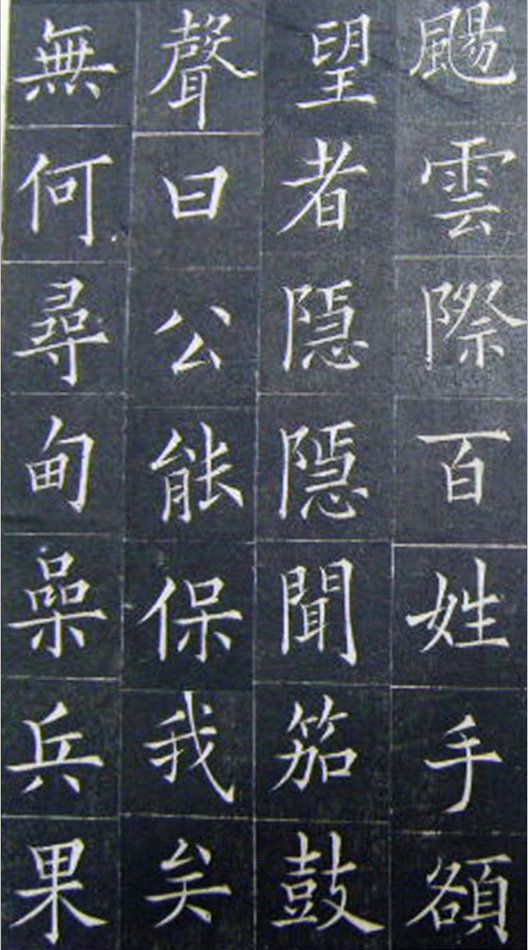 颺雲際百姓手頟
望者隱隱聞笳鼓
聲曰公能保我矣
無何尋甸喿兵果